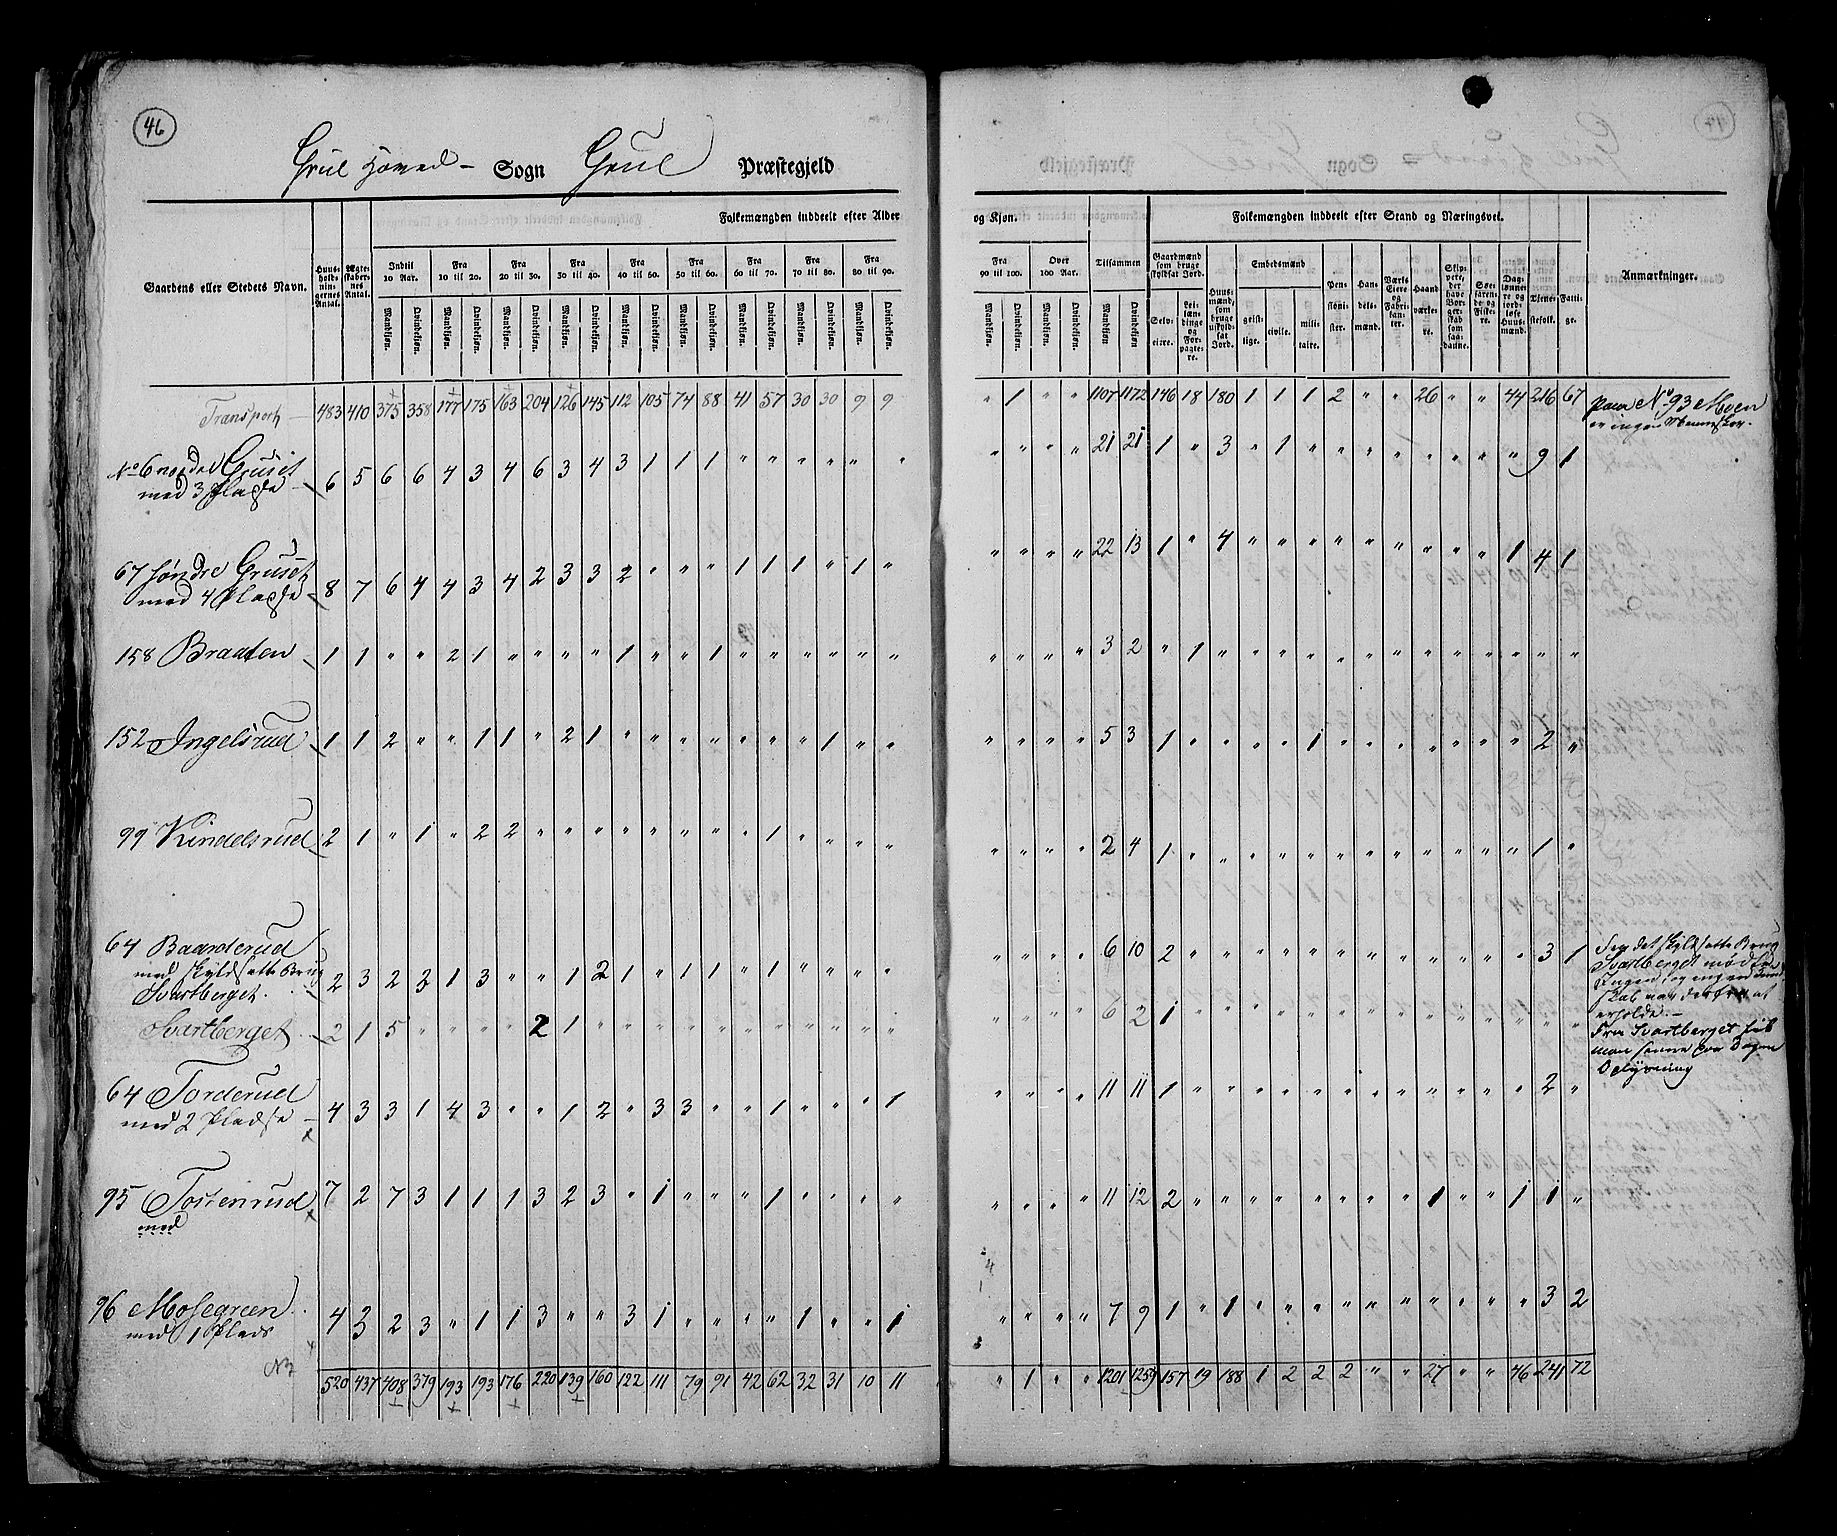 46
Grue Hoved – Sogn Grue Præstegjeld
Gaardens eller Stedets Navn. Huusholdningernes Antal. Ægteskabernes Antal. Folkemængden inddeelt efter Alder og Kjøn. Tilsammen Folkemængden inddeelt efter Stand og Næringsvei. Anmærkninger.
Indtil 10 Aar. Fra 10 til 20. Fra 20 til 30. Fra 30 til 40. Fra 40 til 50. Fra 50 til 60. Fra 60 til 70. Fra 70 til 80. Fra 80 til 90. Fra 90 til 100. Over 100 Aar.
Mandkjøn. Qvindekjøn. Mandkjøn. Qvindekjøn. Mandkjøn. Qvindekjøn. Mandkjøn. Qvindekjøn. Mandkjøn. Qvindekjøn. Mandkjøn. Qvindekjøn. Mandkjøn. Qvindekjøn. Mandkjøn. Qvindekjøn. Mandkjøn. Qvindekjøn. Mandkjøn. Qvindekjøn. Mandkjøn. Qvindekjøn. Mandkjøn. Qvindekjøn.
Gaardmænd som bruge skyldsat Jord. Selveiere. Leilændinge og Forpagtere. Huusmænd, som bruge uskyldsat Jord. Embedsmænd geistlige. civile. militaire. Pensionister. Handelsmænd. Værks Eiere og Fabrikanter. Haandværkere. Skippere, der have Borgerskab som saadanne. Søefarende og Fiskere. Daglønnere og jordløse Huusmænd. Tjenestefolk. Fattige.
Transport – 483 410 375 358 177 175 163 204 126 145 112 105 74 88 41 57 30 30 9 9 " 1 " " 1107 1172 146 18 180 1 1 1 2 " " 26 " " 44 216 67 Paa No 93 Moen
er ingen Mennesker.
No 6 nordre Gruset
med 3 Pladse – 6 5 6 6 4 3 4 6 3 4 3 1 1 1 " " " " " " " " " " 21 21 1 " 3 " 1 " " " " " " " " 9 1
67 søndre Gruset
med 4 Pladse – 8 7 6 4 4 3 4 2 3 3 2 " " " 1 1 1 " 1 " " " " " 22 13 1 " 4 " " " " " " " " " 1 4 1
158 Braaten – 1 1 " " 2 1 " " " " 1 " " 1 " " " " " " " " " " 3 2 " 1 " " " " " " " " " " " " "
152 Ingelsrud – 1 1 2 " " 1 1 " 2 1 " " " " " " " 1 " " " " " " 5 3 1 " " " " 1 " " " " " " " 2 "
99 Kindelsrud – 2 1 " 1 " 2 2 " " " " " " " " 1 " " " " " " " " 2 4 1 " " " " " " " " " " " " 1 "
64 Baarderud
med skyldsatte Brug
Svartberget. – 2 3 2 2 1 3 " " 1 2 1 " 1 1 " 1 " " " " " " " " 6 10 2 " " " " " " " " " " " " 3 1
Svartberget – 2 1 5 " " " " 2 1 " " " " " " " " " " " " " " " 6 2 1 " " " " " " " " " " " " " "
Fra det skyldsatte Brug
Svartberget mødte
Ingen, og ingen Kund-
skab var derfra at
erholde. –
Fra Svartberget fik
man senere
Oplysning
64 Torderud
med 2 Pladse – 4 3 3 1 4 3 " " 1 2 " 3 3 " " 1 " " " 1 " " " " 11 11 1 " " " " " " " " " " " " 2 "
95 Tostenrud
med 7 2 7 3 1 1 1 3 2 3 " 1 " " " 1 " " " " " " " " 11 12 2 " " " " " " " " 1 " " 1 1 "
96 Mosegreen
med 1 Plads 4 3 2 3 " 1 1 3 " " 3 1 " " " " 1 " " 1 " " " " 7 9 1 " 1 " " " " " " " " " " 3 2
520 437 408 379 193 193 176 220 139 160 122 111 79 91 42 62 32 31 10 11 " 1 " " 1201 1259 157 19 188 1 2 2 2 " " 27 " " 46 241 72